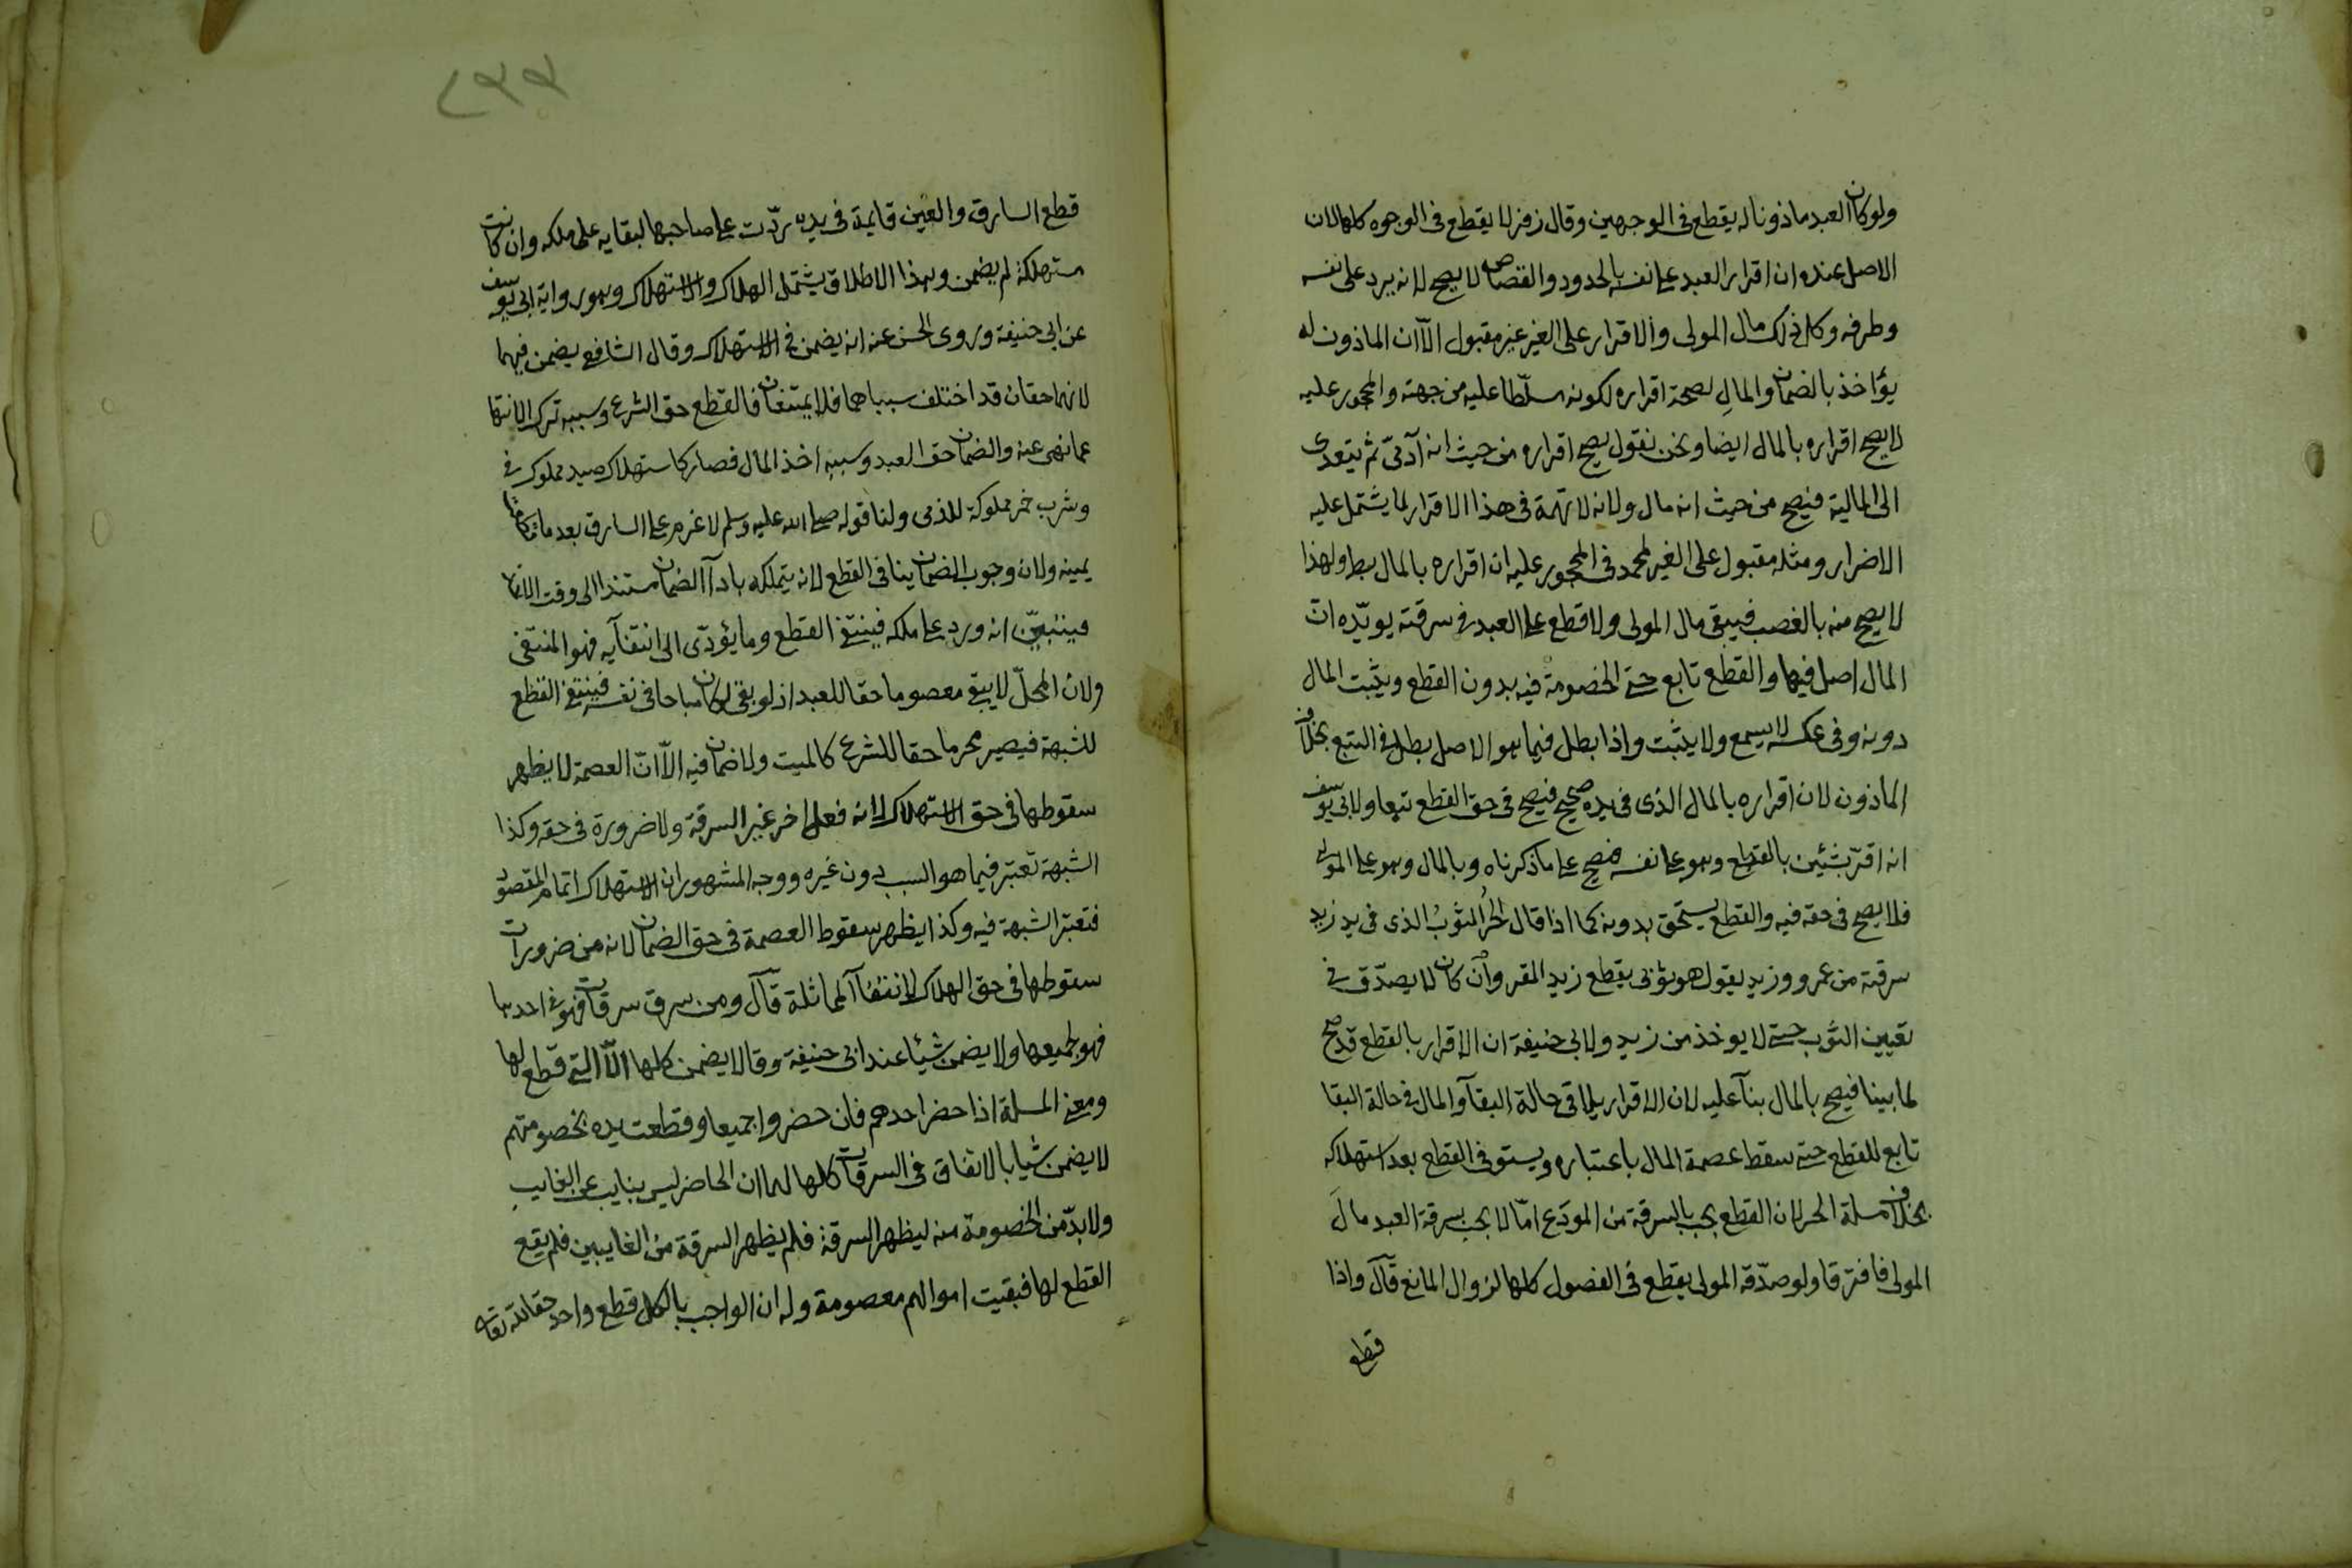 ولو كان العبد ماذونا له يقطع في الوجهين وقال زفر لا يقطع في الوجوه كلها لان
الاصل عنده ان اقرار العبد على نفسه بالحدود والقصاص لا يصح لانه يرد على نفسه
وطرفه وكل ذلك مال المولى والاقرار على الغير غير مقبول الا ان الماذون له
يؤاخذ بالضمان والمال لصحة اقراره لكونه مسلّطا عليه من جهته والمحجور عليه
لا يصح اقراره بالمال ايضا ونحن نقول يصح اقراره من حيث انه آدمىّ ثم يتعدى
الى المالية فيصح من حيث انه مال ولانه لا تهمة في هذا الاقرار لما يشتمل عليه
الاضرار ومثله مقبول على الغير لمحمد في المحجور عليه ان اقراره بالمال بط ولهذا
لا يصح منه بالغصب فيبقى مال المولى ولا قطع على العبد في سرقته يويّده انّ
المال اصل فيها والقطع تابع حتى الخصومة فيه بدون القطع ويثبت المال
دونه وفي عكسه لا يسمع ولا يثبت واذا بطل فيما هو الاصل بطل في التبع بخلاف
الماذون لان اقراره بالمال الذى في يده صحيح فيصح في حق القطع تبعا ولابي يوسف
انه اقرّ بشئين بالقطع وهو على نفسه فيصح على ما ذكرناه وبالمال وهو على المولى
فلا يصح في حقه فيه والقطع يستحق بدونه كما اذا قال الحُرُ الثوبُ الذى في يد زيد
سرقته من عمرو وزيد يقول هو ثوبى يقطع يد المقر وان كان لا يصدّق في
تعيين الثوب حتى لا يوخذ من زيد ولابي حنيفة ان الاقرار بالقطع قد صح
لما بينا فيصح بالمال بنآ عليه لان الاقرار يلاقى حالة البقآ والمال في حالة البقا
تابع للقطع حتى سقط عصمة المال باعتباره ويستوفى القطع بعد استهلاكه
بخلاف مسلة الحر لان القطع يجب بالسرقة من المودَع امّا لا يجب بسرقة العبد مالَ
المولى فافترقا ولو صدّقه المولى يقطع في الفصول كلها لزوال المانع قال واذا
قطع
٢٩٩
قطع السارق والعين قايمة في يده ردّت على صاحبها لبقايه على ملكه وان كانت
مستهلكة لم يضمن وهذا الاطلاق يشتمل الهلاك والاستهلاك وهو رواية ابي يوسف
عن ابي حنيفة وروى الحسن عنه انه يضمن في الاستهلاك وقال الشافعي يضمن فيهما
لانهما حقان قد اختلف سبباهما فلا يمتنعان فالقطع حق الشرع وسببه ترك الانتها
عما نهى عنه والضمان حق العبد وسببه اخذ المال فصار كاستهلاك صيد مملوك في
وشرب خمر مملوكة للذمى ولنا قوله صلى الله عليه وسلم لا غرم على السارق بعد ما
يمينه ولان وجوب الضمان ينافى القطع لانه يتملكه بادآ الضمان مستندا الى وقت
فيتبيّن انه ورد على ملكه فينتفى القطع وما يؤدّى الى انتفآيه فهو المنتفى
ولان المحلّ لا يبقى معصوما حقا للعبد اذ لو بقى لكان مباحا في نفسه فينتفى القطع
للشبهة فيصير محرما حقا للشرع كالميت ولا ضمان فيه الاّ انّ العصمة لا يظهر
سقوطها في حق الاستهلاك لانه فعل اخر غير السرقة ولا ضرورة في حقه وكذا
الشبهة تعتبر فيما هو السبب دون غيره ووجه المشهور ان الاستهلاك اتمام المقصود
فتعتبر الشبهة فيه وكذا يظهر سقوط العصمة في حق الضمان لانه من ضرورات
سقوطها في حق الهلاك لانتفآ المماثلة قال ومن سرق سرقات فهو في احديها
فهو لجميعها ولا يضمن شيئا عند ابي حنيفة وقالا يضمن كلها الاّ التى قطع لها
ومعنى المسلة اذا حضر احدهم فان حضروا جميعا وقطعت يده بخصومتهم
لا يضمن شيا بالاتفاق في السرقات كلها لهما ان الحاضر ليس بنايب عن الغايب
ولا بدّ من الخصومة منه ليظهر السرقة فلم يظهر السرقة من الغايبين فلم يقع
القطع لها فبقيت اموالهم معصومة وله ان الواجب بالكل قطع واحد حقا لله تعالى